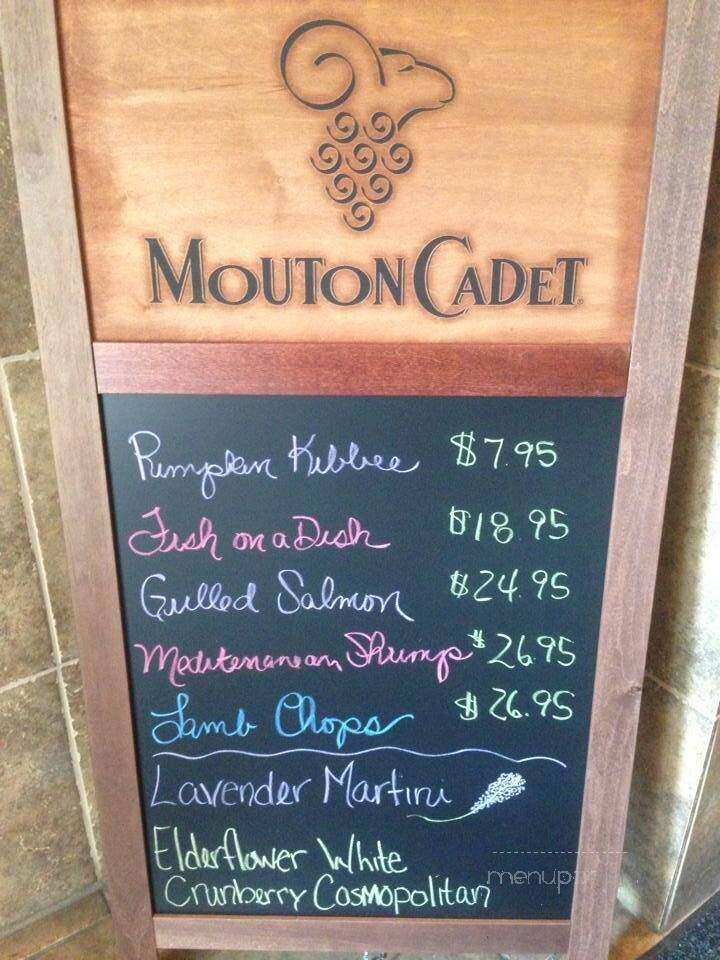 MOUTON CADET
Pumpkin Kibbee $7.95
Fish on a Dish $18.95
Grilled Salmon $24.95
Mediterranean Shrimp $26.95
Lamb Chops $26.95
Lavender Martini
Elderflower White
Crunberry Cosmopolitan
menupix